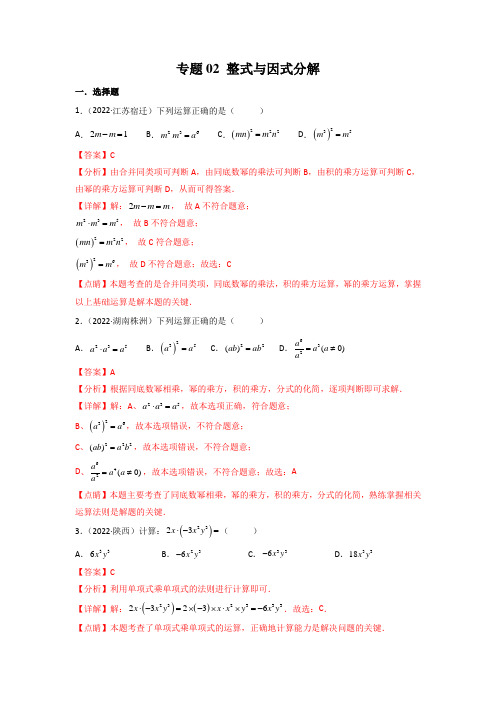 专题02 整式与因式分解
一．选择题
1．（2022·江苏宿迁）下列运算正确的是（　　）
A．2m−m=1 B．m²·m³=a⁶ C．(mn)²=m²n² D．(m³)²=m⁵
【答案】C
【分析】由合并同类项可判断 A，由同底数幂的乘法可判断 B，由积的乘方运算可判断 C，
由幂的乘方运算可判断 D，从而可得答案．
【详解】解：2m−m=m， 故 A 不符合题意；
m²·m³=m⁵， 故 B 不符合题意；
(mn)²=m²n²， 故 C 符合题意；
(m³)²=m⁶， 故 D 不符合题意；故选：C
【点睛】本题考查的是合并同类项，同底数幂的乘法，积的乘方运算，幂的乘方运算，掌握
以上基础运算是解本题的关键．
2．（2022·湖南株洲）下列运算正确的是（　　）
A．a²·a³=a⁵ B．(a³)²=a⁵ C．(ab)²=ab² D．a⁶/a²=a³(a≠0)
【答案】A
【分析】根据同底数幂相乘，幂的乘方，积的乘方，分式的化简，逐项判断即可求解．
【详解】解：A、a²·a³=a⁵，故本选项正确，符合题意；
B、(a³)²=a⁶，故本选项错误，不符合题意；
C、(ab)²=a²b²，故本选项错误，不符合题意；
D、a⁶/a²=a⁴(a≠0)，故本选项错误，不符合题意；故选：A
【点睛】本题主要考查了同底数幂相乘，幂的乘方，积的乘方，分式的化简，熟练掌握相关
运算法则是解题的关键．
3．（2022·陕西）计算：2x·(−3x²y³)=（　　）
A．6x³y³ B．−6x²y³ C．−6x³y³ D．18x³y³
【答案】C
【分析】利用单项式乘单项式的法则进行计算即可．
【详解】解：2x·(−3x²y³)=2×(−3)×x·x²×y³=−6x³y³．故选：C．
【点睛】本题考查了单项式乘单项式的运算，正确地计算能力是解决问题的关键．